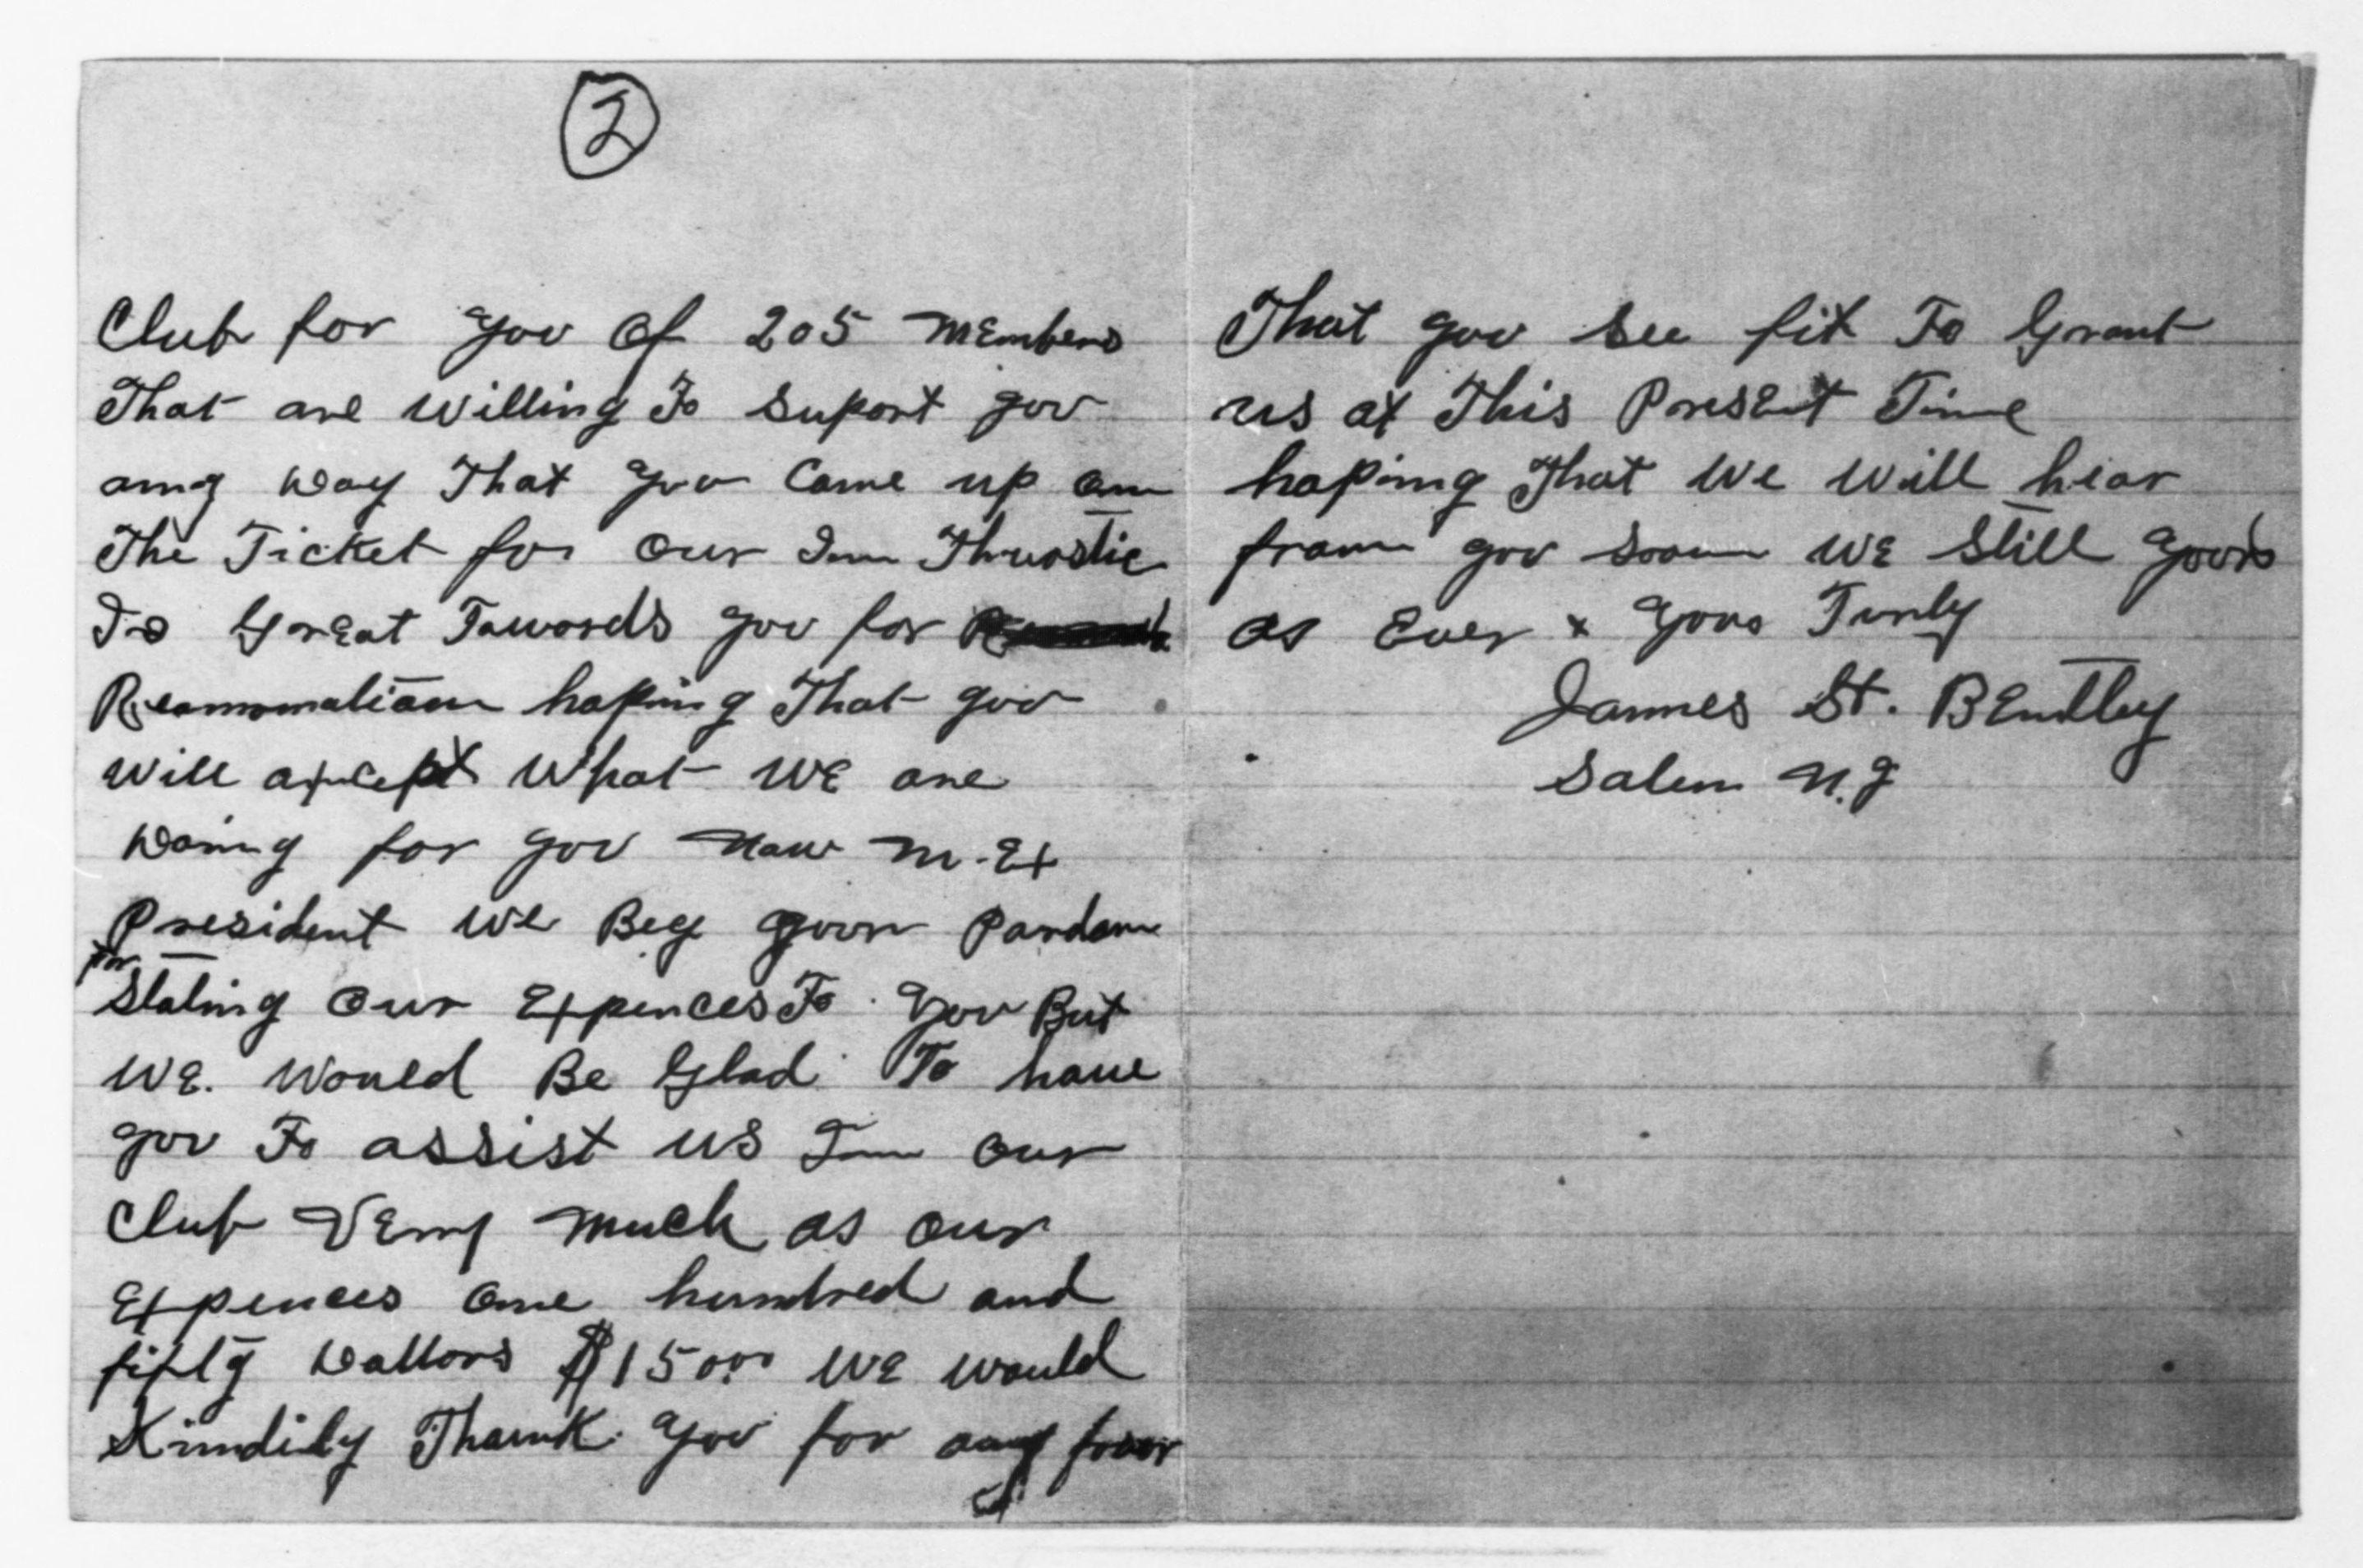 2
Club for you of 205 members
That are willing To suport you
any way That you Come up on
The Ticket for our Inn Thurstic
Is Great Towords you for
Reamomation hoping That you
will accept What WE are
Doing for you Now M. Ex
President We Beg your Pardon
for Stating our Expences To you But
WE. Would Be Glad To have
you To assist us In our
Club VEry much as our
Expences one hundred and
fifty Dallors $150.00 WE would
Kindily Thank you for any favor
That you see fit To Grant
us at This Present Time
hoping That We Will hear
from you soon WE Still yours
as Ever x yours Turly
James St. BEntley
Salem N.J